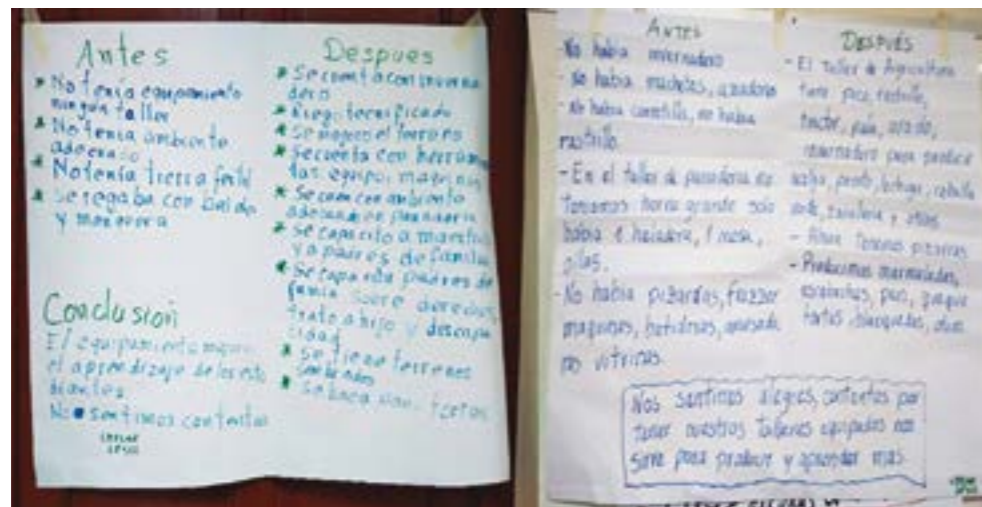 Antes
* No tenía equipamiento
ningún taller
* No tenía ambiente
adecuado
* No tenía tierra fertil
* Se regaba con balde
y manguera
Conclusión
El equipamiento mejora
el aprendizaje de los estu
diantes
Nos sentimos contentos
Despues
* Se cuenta con inverna
dero
* Riego tecnificado
* Se mejoro el terreno
* Se cuenta con herramien
tas, equipo, maquinas
* Se cuenta con ambiente
adecuado en panaderia
* Se capacito a maestros
y a padres de familia
* Se capacito padres de
familia sobre derechos,
trato a hijo y discapa
cidad
* Se tiene terrenos
sembrados
*
ANTES
- No habia invernadero
- No habia machetes, azadones
- No habia carretilla, no habia
rastrillo.
- En el taller de panaderia no
teniamos horno grande solo
habia 1 heladera, 1 mesa,
ollas.
- No habia pizarras, frezzer
maquinas, batidoras,
no vitrinas.
DESPUÉS
- El taller de Agricultura
tiene pica, rastrillo,
tractor, pala, arado,
invernadero para producir
acelga, perejil, lechuga, cebolla
y otros.
- Ahora Tenemos pizarras
- Producimos mermeladas,
escabeches, pan,
tortas, otros
Nos sentimos alegres, contentos por
tener nuestros talleres equipados nos
sirve para producir y aprender más.